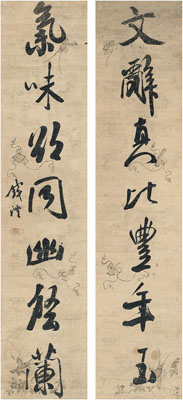 文辭真比豐年玉
氣味欣同幽谷蘭
錢灃